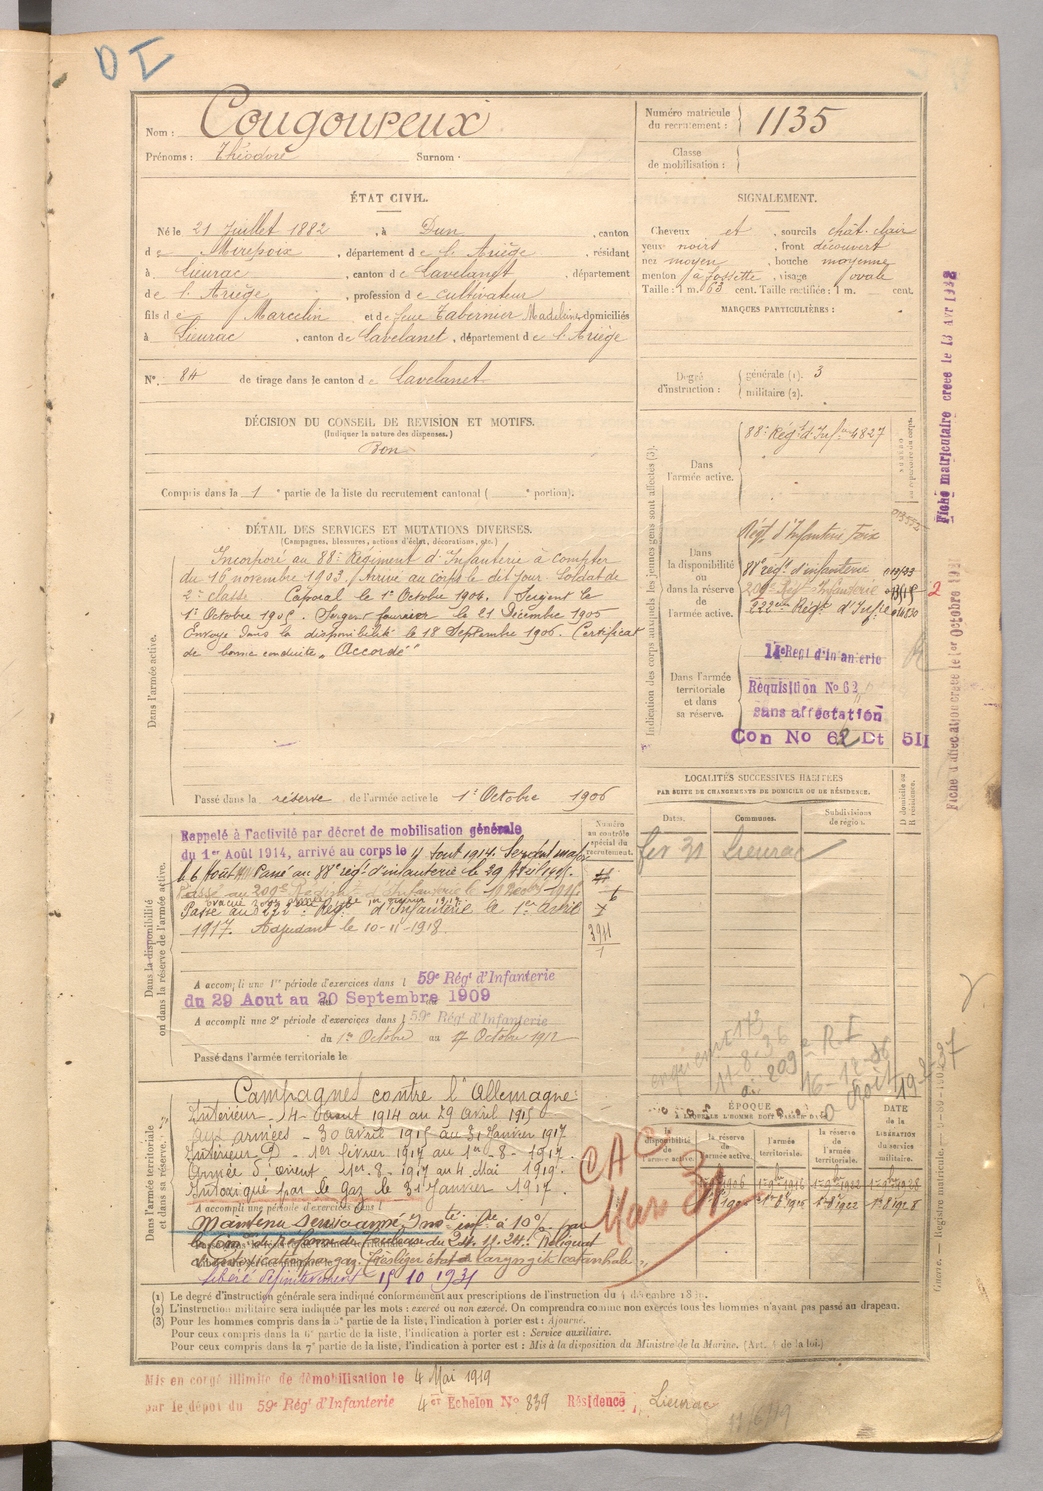 DI
Nom : Cougoureux
Prénoms : Théodore Surnom :
Numéro matricule du recrutement : 1135
Classe de mobilisation :
ÉTAT CIVIL.
Né le 21 Juillet 1882, à Dun, canton
de Mirepoix, département de l'Ariège, résidant
à Lieurac, canton de Lavelanet, département
de l'Ariège, profession de cultivateur
fils de Marcelin et de feue Tabernier Madeleine, domiciliés
à Lieurac, canton de Lavelanet, département de l'Ariège
N° 84 de tirage dans le canton de Lavelanet
SIGNALEMENT.
Cheveux et, sourcils chât. clair
yeux noirs, front découvert
nez moyen, bouche moyenne
menton à fossette, visage ovale
Taille : 1 m. 63 cent. Taille rectifiée : 1 m. cent.
MARQUES PARTICULIÈRES :
Degré d'instruction : générale (1). 3
militaire (2).
DÉCISION DU CONSEIL DE REVISION ET MOTIFS.
(Indiquer la nature des dispenses.)
Bon
Compris dans la 1e partie de la liste du recrutement cantonal ( e portion).
DÉTAIL DES SERVICES ET MUTATIONS DIVERSES.
(Campagnes, blessures, actions d'éclat, décorations, etc.)
Dans l'armée active.
Incorporé au 88e Régiment d'Infanterie à compter
du 16 novembre 1903. Arrivé au corps le dit jour. Soldat de
2e classe Caporal le 1er Octobre 1904. Sergent le
1er Octobre 1905. Sergent fourrier le 21 Décembre 1905
Envoyé dans la disponibilité le 18 Septembre 1906. Certificat
de bonne conduite "Accordé"
Passé dans la réserve de l'armée active le 1er Octobre 1906
Indication des corps auxquels les jeunes gens sont affectés (3).
Dans l'armée active.
88e Régt d'Inf. 4827
Dans la disponibilité ou dans la réserve de l'armée active.
Régt d'Infanterie Foix
88e régt d'infanterie
209e Régt Infanterie
222eme Régt d'Infie
2
Dans l'armée territoriale et dans sa réserve.
14e Régt d'Infanterie
Réquisition No 62
sans affectation
Con No 62 Dt 511
Fiche matriculaire créée le 13 Avr 1932
Fiche d'affectation créée le 1er Octobre
LOCALITÉS SUCCESSIVES HABITÉES
PAR SUITE DE CHANGEMENTS DE DOMICILE OU DE RÉSIDENCE.
Dates. Communes. Subdivisions de région. D domicile ou R résidence.
fév 31 Lieurac
Dans la disponibilité ou dans la réserve de l'armée active.
Numéro au contrôle spécial du recrutement.
Rappelé à l'activité par décret de mobilisation générale
du 1er Août 1914, arrivé au corps le 4 Aout 1914. Sergent major
le 6 Août Passé au 88e régt d'infanterie le 29 Avril 1915.
Passé au 209e Régiment d'Infanterie le
Passé au 222e Régt d'Infanterie le 1er Avril
1917. Adjudant le 10-11-1918.
A accompli une 1re période d'exercices dans l 59e Régt d'Infanterie
du 29 Aout au 20 Septembre 1909
A accompli une 2e période d'exercices dans l 59e Régt d'Infanterie
du 1er Octobre au 17 Octobre 1912
Passé dans l'armée territoriale le
11-8-36
209e R.I
16-12-36
Dans l'armée territoriale et dans sa réserve.
Campagnes contre l'Allemagne :
Intérieur - 4 - Aout 1914 au 29 Avril 1915
aux armées - 30 Avril 1915 au 31 Janvier 1917
Intérieur D - 1er février 1917 au 1er - 8 - 1917.
Armée d'orient 1er-8-1917 au 4 Mai 1919.
Intoxiqué par le gaz le 31 Janvier 1917.
A accompli une période d'exercices dans l
Maintenu service armé, Invté infre à 10% par
la Com. de Réforme de Toulouse du 24.11.24. Reliquat
d'intoxication par gaz. Très léger état de laryngite catarrhale.
Libéré définitivement 15 10 1931
CAC
Mars 31
ÉPOQUE
À LAQUELLE L'HOMME DOIT PASSER DANS
la disponibilité de l'armée active. la réserve de l'armée active. l'armée territoriale. la réserve de l'armée territoriale.
DATE de la LIBÉRATION du service militaire.
(1) Le degré d'instruction générale sera indiqué conformément aux prescriptions de l'instruction du 4 décembre 18
(2) L'instruction militaire sera indiquée par les mots : exercé ou non exercé. On comprendra comme non exercés tous les hommes n'ayant pas passé au drapeau.
(3) Pour les hommes compris dans la 5e partie de la liste, l'indication à porter est : Ajourné.
Pour ceux compris dans la 6e partie de la liste, l'indication à porter est : Service auxiliaire.
Pour ceux compris dans la 7e partie de la liste, l'indication à porter est : Mis à la disposition du Ministre de la Marine. (Art. 4 de la loi.)
Mis en congé illimité de démobilisation le 4 Mai 1919
par le dépot du 59e Régt d'Infanterie 4e Echelon No 839 Résidence, Lieurac